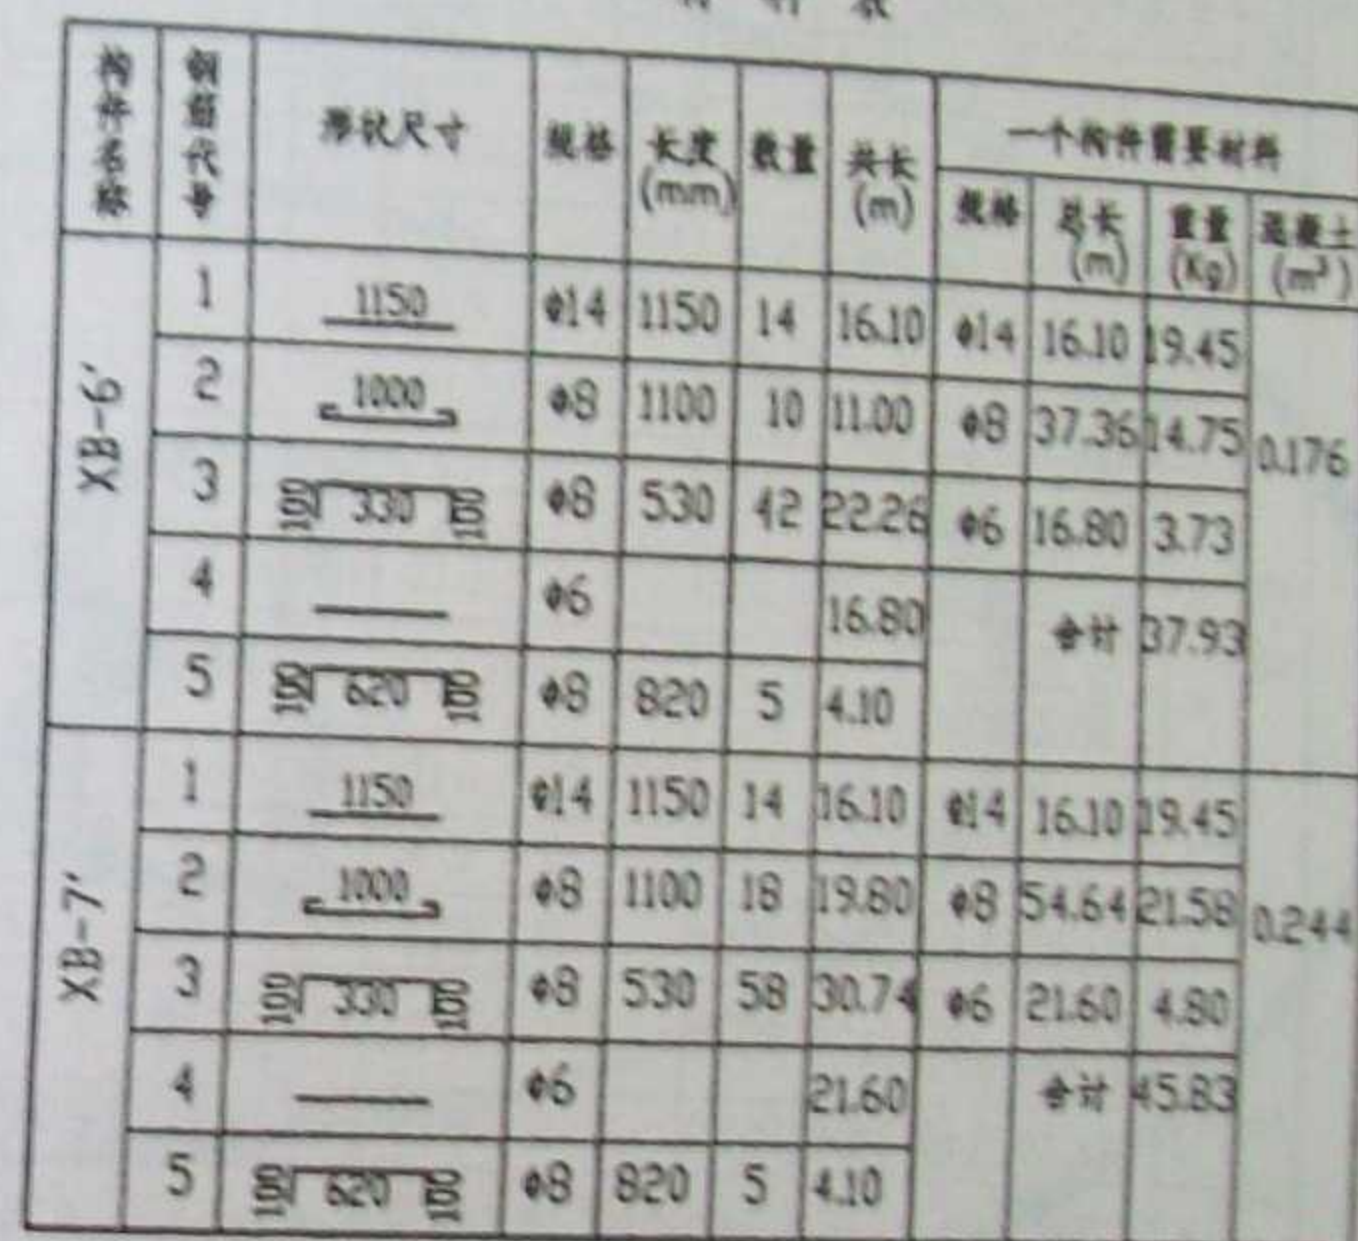 材 料 表
构件名称 钢筋代号 形状尺寸 规格 长度(mm) 数量 共长(m) 一个构件需要材料
规格 总长(m) 重量(Kg) 混凝土(m³)
XB-6' 1 1150 φ14 1150 14 16.10 φ14 16.10 19.45 0.176
2 1000 φ8 1100 10 11.00 φ8 37.36 14.75
3 100 330 100 φ8 530 42 22.26 φ6 16.80 3.73
4 φ6 16.80 合计 37.93
5 100 620 100 φ8 820 5 4.10
XB-7' 1 1150 φ14 1150 14 16.10 φ14 16.10 19.45 0.244
2 1000 φ8 1100 18 19.80 φ8 54.64 21.58
3 100 330 100 φ8 530 58 30.74 φ6 21.60 4.80
4 φ6 21.60 合计 45.83
5 100 620 100 φ8 820 5 4.10